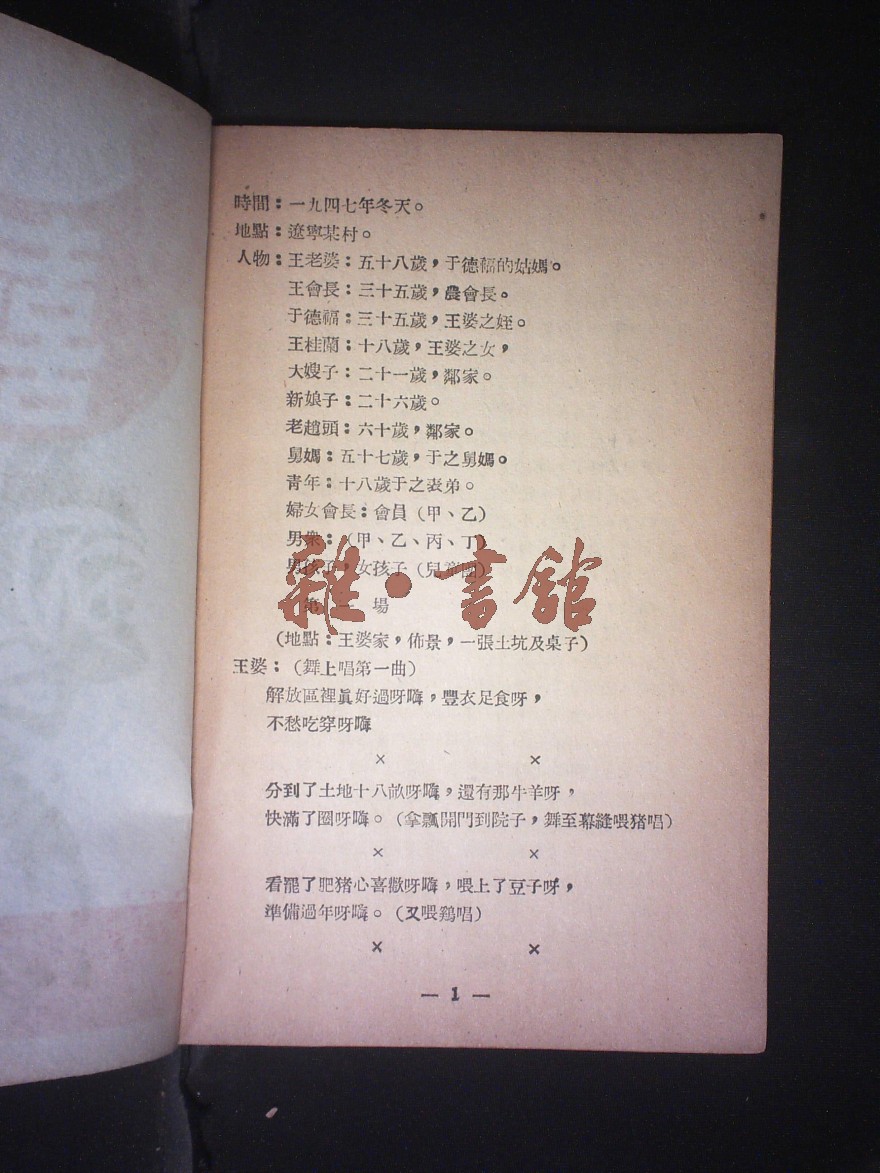 時間：一九四七年冬天。
地點：遼寧某村。
人物：王老婆：五十八歲，于德福的姑媽。
王會長：三十五歲，農會長。
于德福：三十五歲，王婆之姪。
王桂蘭：十八歲，王婆之女，
大嫂子：二十一歲，鄰家。
新娘子：二十六歲。
老趙頭：六十歲，鄰家。
舅媽：五十七歲，于之舅媽。
青年：十八歲于之表弟。
婦女會長：會員（甲、乙）
男衆：（甲、乙、丙、丁）
男孩子，女孩子（兒童團）
雜·書館
第一場
（地點：王婆家，佈景，一張土坑及桌子）
王婆：（舞上唱第一曲）
解放區裡眞好過呀嗨，豐衣足食呀，
不愁吃穿呀嗨
× ×
分到了土地十八畝呀嗨，還有那牛羊呀，
快滿了圈呀嗨。（拿瓢開門到院子，舞至幕縫喂猪唱）
× ×
看罷了肥猪心喜歡呀嗨，喂上了豆子呀，
準備過年呀嗨。（又喂鷄唱）
× ×
— 1 —